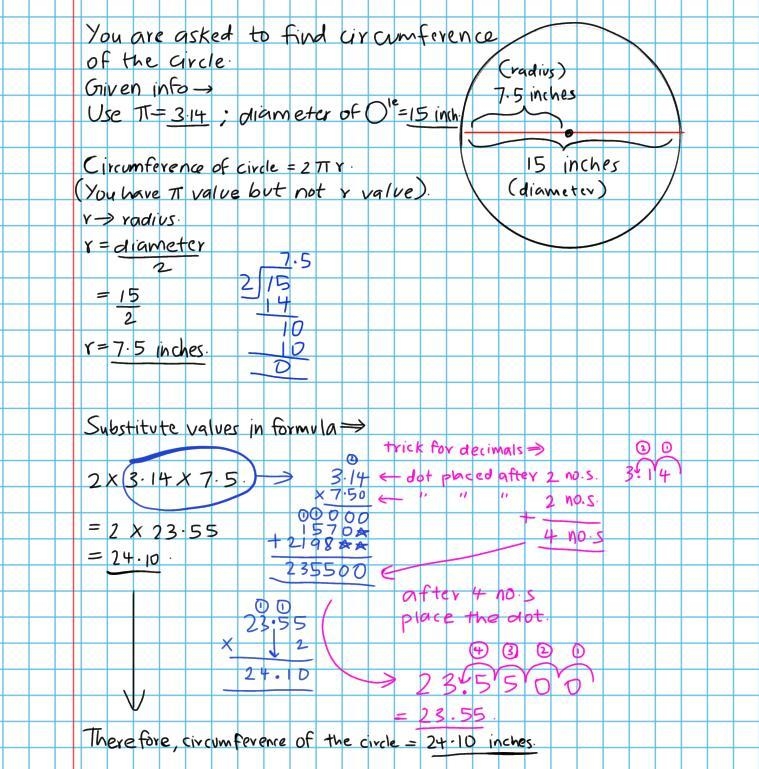 You are asked to find circumference
of the circle.
Given info →
Use π = 3.14 ; diameter of O^le = 15 inch
(radius)
7.5 inches
15 inches
(diameter)
Circumference of circle = 2πr.
(You have π value but not r value).
r → radius.
r = diameter
2
= 15
2
r = 7.5 inches.
7.5
2 15
14
10
10
0
Substitute values in formula ⇒
2 × 3.14 × 7.5. →
= 2 × 23.55
= 24.10.
② 
3.14
× 7.50
①①
00000
1570★
+ 2198★★
235500
trick for decimals ⇒
← dot placed after 2 no.s.
← " " " 2 no.s.
+
4 no.s
② ①
3.14
after 4 no.s
place the dot.
④ ③ ② ①
23.5500
= 23.55.
① ①
23.55
× 2
24.10
Therefore, circumference of the circle = 24.10 inches.